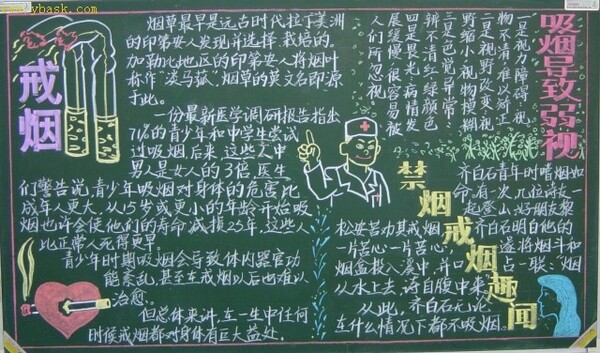 戒烟
烟草最早是远古时代拉丁美洲
的印第安人发现并选择、栽培的。
加勒比地区的印第安人将烟叶
称作“淡马菰”,烟草的英文名即源
于此。
一份最新医学调研报告指出
71%的青少年和中学生尝试
过吸烟,后来,这些人中
男人是女人的3倍,医生
们警告说,青少年吸烟对身体的危害比
成年人更大,从15岁或更小的年龄开始吸
烟也许会使他们的寿命减损25年,这些人
比正常人死得更早。
青少年时期吸烟会导致体内器官功
能紊乱,甚至在戒烟以后也难以
治愈。
但总体来讲,在一生中任何
时候戒烟都对身体有巨大益处。
吸烟导致弱视
一是视力障碍,视
物不清难以矫正
二是视野改变,视
野缩小,视物模糊
三是色觉异常,
辨不清红绿颜色
四是畏光,病情发
展缓慢,很容易被
人们所忽视
禁烟戒烟趣闻
齐白石青年时嗜烟如
命,有一次,几位诗友一
起登山,好朋友黎
松安苦劝其戒烟,齐白石明白他的
一片苦心,遂将烟斗和
烟盒投入溪中,并口占一联:“烟
从水上去,诗自腹中来”
从此,齐白石无论
在什么情况下都不吸烟。